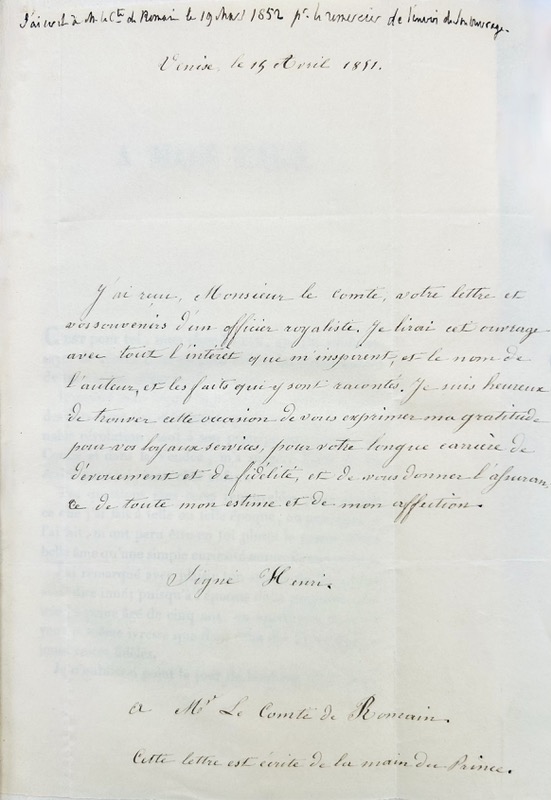 J'ai écrit à Mr le Cte de Romain le 19 Mars 1852 pr. le remercier de l'envoi de son ouvrage.
Venise, le 15 Avril 1851.
J'ai reçu, Monsieur le comte, votre lettre et
vos souvenirs d'un officier royaliste. Je lirai cet ouvrage
avec tout l'intérêt que m'inspirent, et le nom de
l'auteur, et les faits qui y sont racontés. Je suis heureux
de trouver cette occasion de vous exprimer ma gratitude
pour vos loyaux services, pour votre longue carrière de
dévouement et de fidélité, et de vous donner l'assuran
ce de toute mon estime et de mon affection.
Signé Henri.
a Mr Le Comte de Romain.
Cette lettre est écrite de la main du Prince.